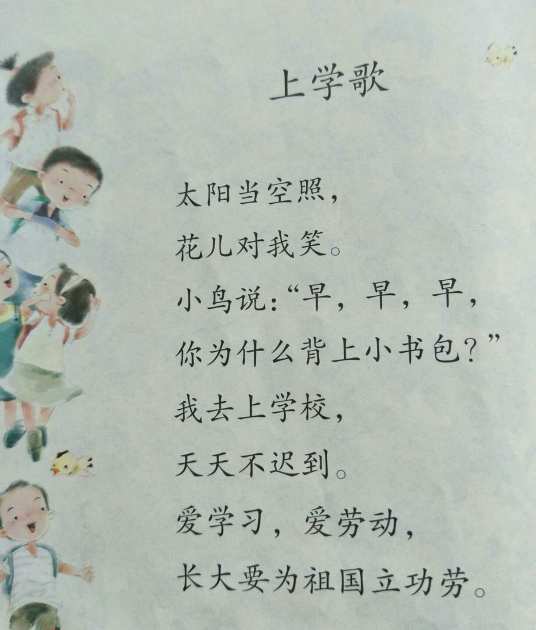 上学歌
太阳当空照，
花儿对我笑。
小鸟说：“早，早，早，
你为什么背上小书包？”
我去上学校，
天天不迟到。
爱学习，爱劳动，
长大要为祖国立功劳。